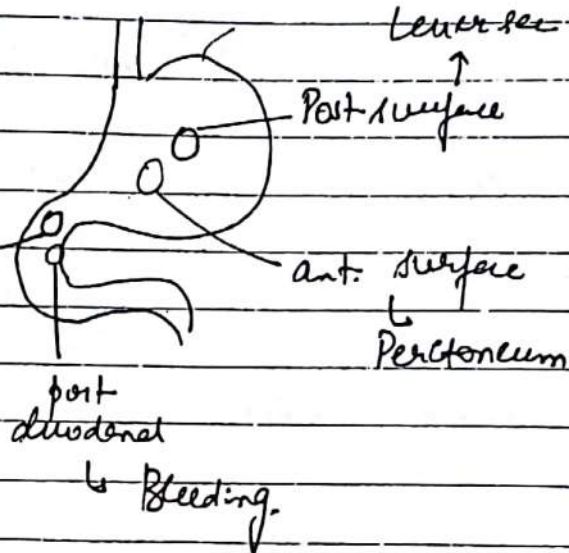 Lesser sac
↑
Post surface
ant. surface
↳
Peritoneum
post
duodenal
↳ Bleeding.